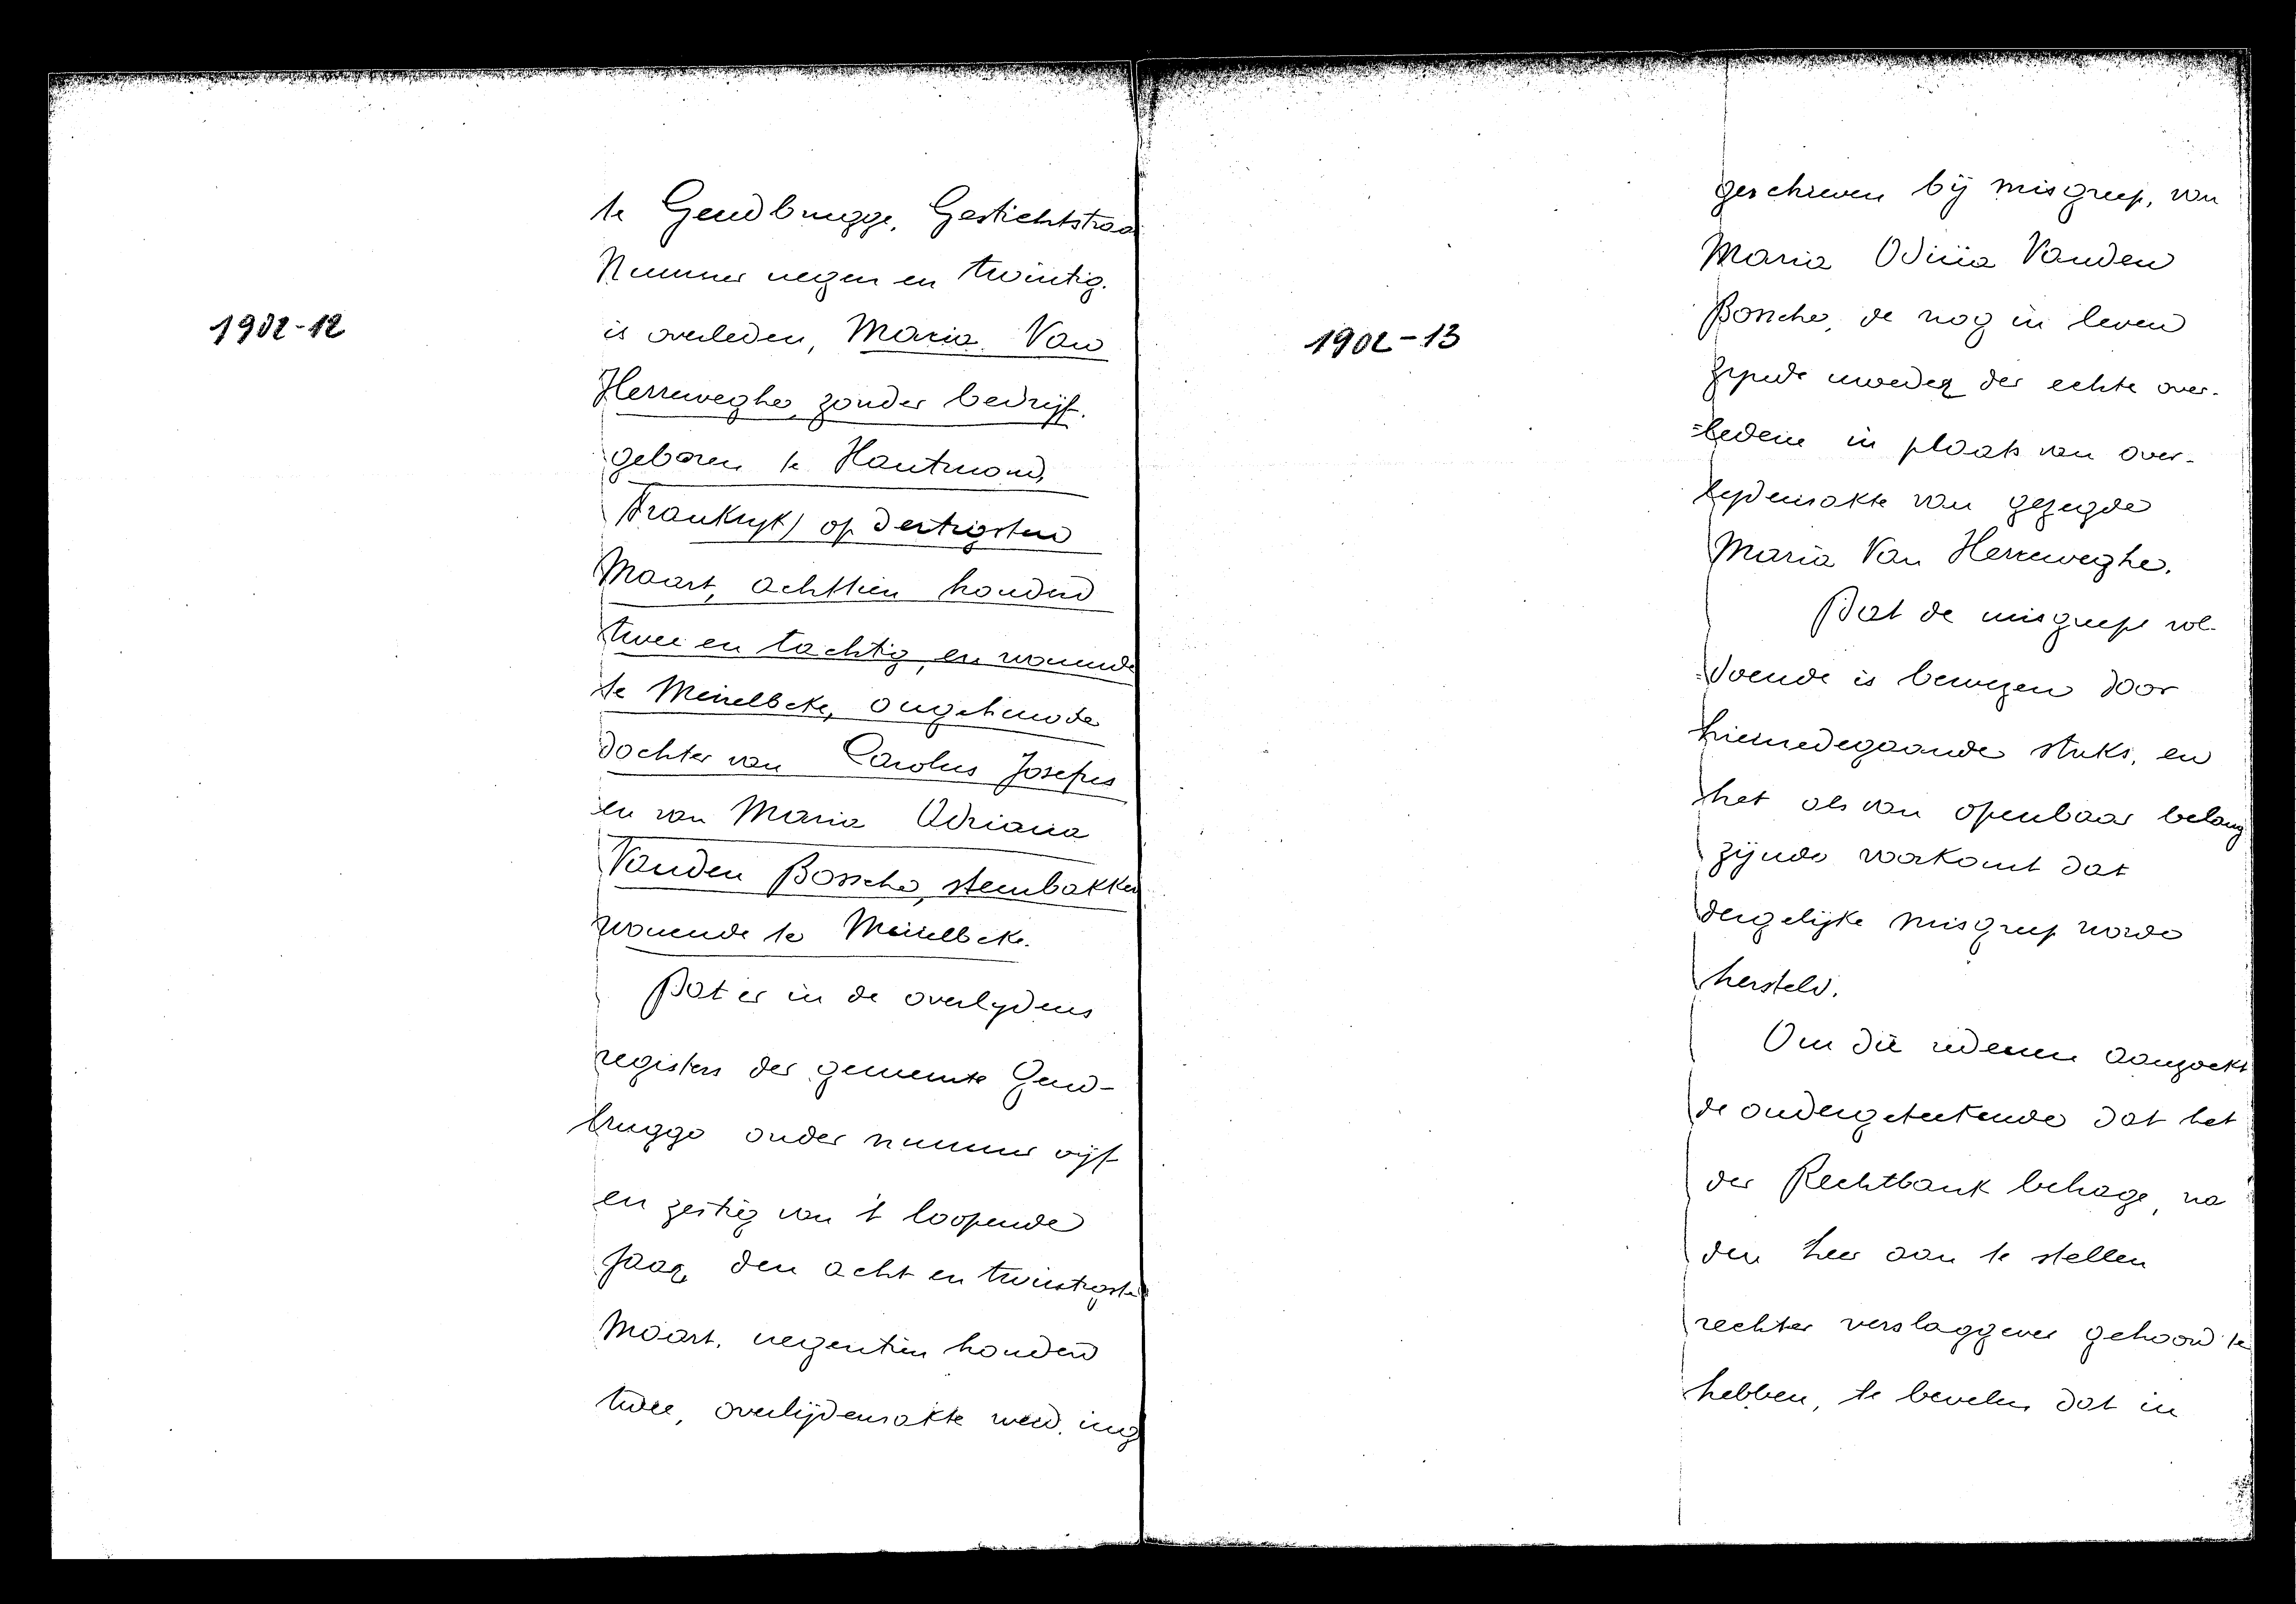 1902-12
te Gendbrugge, Gestichtstraa
Nummer negen en twintig.
is overleden, Maria Van
Herreweghe, zonder bedrijf.
geboren te Hautmond,
Frankryk) op dertigsten
Maart, achttien honderd
twee en tachtig, en wonende
te Meirelbeke, ongehuwde
dochter van Carolus Josefus
en van Maria Adriana
Vanden Bossche, steenbakker
wonende te Meirelbeke.
Dat er in de overlydens
registers der gemeente Gend-
brugge onder nummer vijf
en zestig van 't loopende
jaar, den acht en twintigste
Maart, negentien honderd
twee, overlijdensakte werd ing
1902-13
geschreven bij misgreep, van
Maria Vanden
Bossche, de nog in leven
zynde moeder der echte over-
=ledene in plaats van over-
lydensakte van gezegde
Maria Van Herreweghe.
Dat de misgreep vol-
=doende is bewezen door
hiermedegaande stuks, en
het als van openbaar belang
zijnde voorkomt dat
dergelijke misgreep worde
hersteld.
Om die redenen aanzoekt
de ondergeteekende dat het
der Rechtbank behage, na
den heer aan te stellen
rechter verslaggever gehoord te
hebben, te bevelen dat in